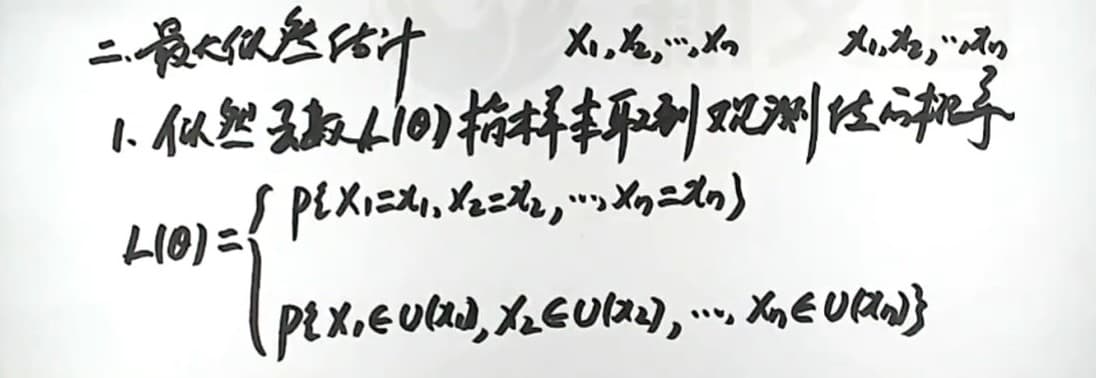 二.最大似然估计 X₁,X₂,…,Xₙ x₁,x₂,…,xₙ
1. 似然函数L(θ)指样本取到观测值的概率
L(θ)={ P{X₁=x₁,X₂=x₂,…,Xₙ=xₙ}
P{X₁∈U(x₁),X₂∈U(x₂),…,Xₙ∈U(xₙ)}